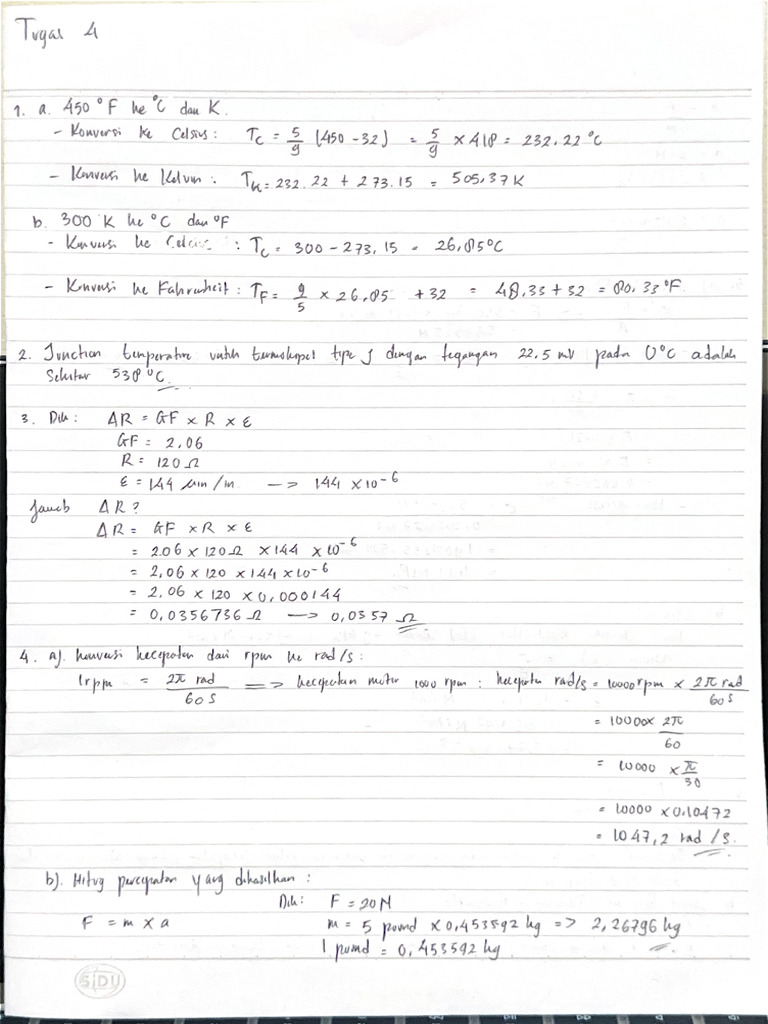 Tugas 4
1. a. 450 °F ke °C dan K.
- Konversi ke Celsius : Tc = 5/9 (450 - 32) = 5/9 × 418 = 232.22 °C
- Konversi ke Kelvin : Tk = 232.22 + 273.15 = 505.37 K
b. 300 K ke °C dan °F
- Konversi ke Celcius : Tc = 300 - 273.15 = 26,85°C
- Konversi ke Fahrenheit : TF = 9/5 × 26,85 + 32 = 48,33 + 32 = 80.33 °F
2. Junction temperature untuk termokopel tipe J dengan tegangan 22.5 mV pada 0°C adalah
Sekitar 538 °C.
3. Dik : ΔR = GF × R × ε
GF = 2,06
R = 120 Ω
ε = 144 μm/m —> 144 × 10-6
Jawab ΔR ?
ΔR = GF × R × ε
= 2.06 × 120 Ω × 144 × 10-6
= 2,06 × 120 × 144 × 10-6
= 2,06 × 120 × 0,000144
= 0,0356736 Ω —> 0,0357 Ω
4. a). konversi kecepatan dari rpm ke rad/s :
1 rpm = 2π rad/60 s => kecepatan motor 1000 rpm : kecepatan rad/s = 10000 rpm × 2π rad/60 s
= 10000 × 2π/60
= 10000 × π/30
= 10000 × 0.10472
= 1047,2 rad/s.
b). Hitung percepatan yang dihasilkan :
Dik : F = 20 N
F = m × a m = 5 pound × 0,453592 kg => 2,26796 kg
1 pound = 0,453592 kg
SIDU